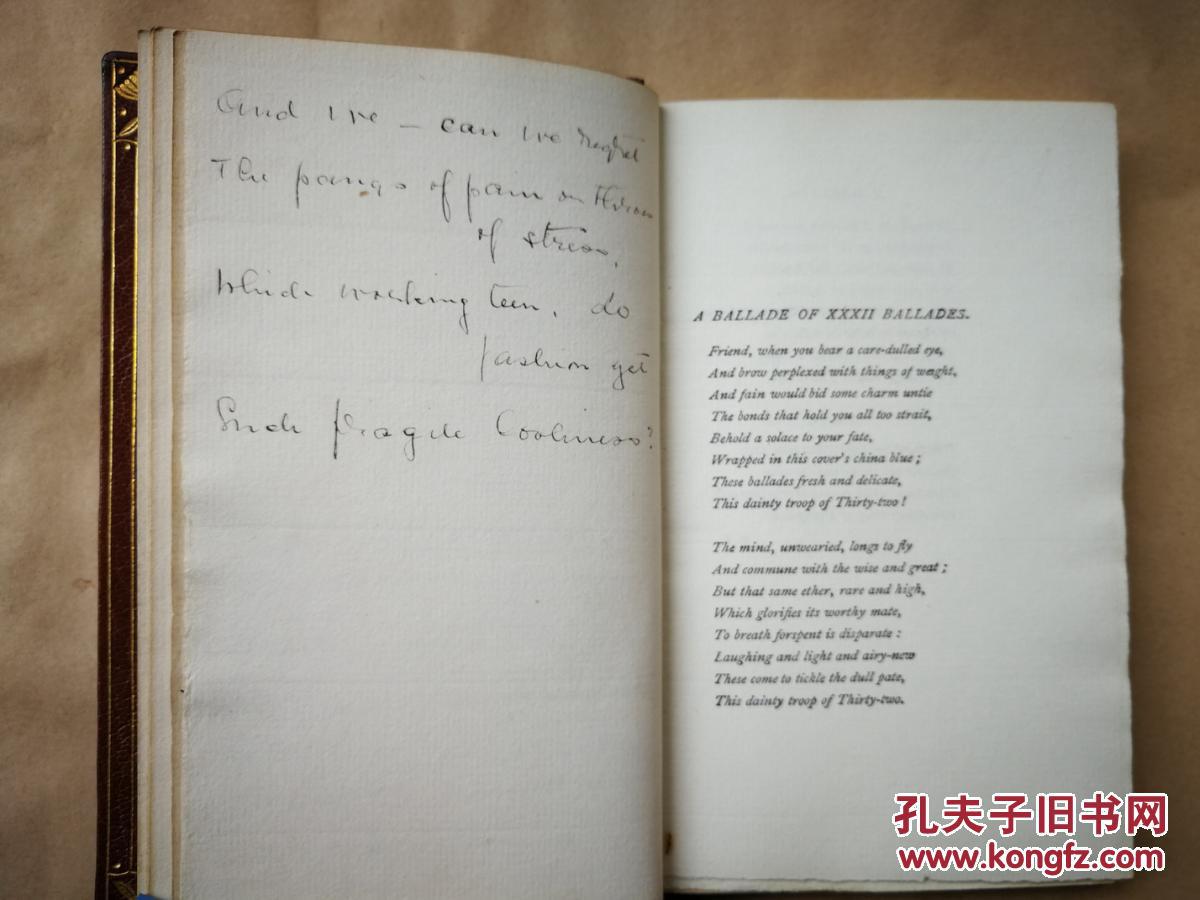 And we — can we regret
The pangs of pain or throes
of stress,
Which working teen, do
fashion yet
Such fragile loveliness?
A BALLADE OF XXXII BALLADES.
Friend, when you bear a care-dulled eye,
And brow perplexed with things of weight,
And fain would bid some charm untie
The bonds that hold you all too strait,
Behold a solace to your fate,
Wrapped in this cover's china blue;
These ballades fresh and delicate,
This dainty troop of Thirty-two!
The mind, unwearied, longs to fly
And commune with the wise and great;
But that same ether, rare and high,
Which glorifies its worthy mate,
To breath forspent is disparate:
Laughing and light and airy-new
These come to tickle the dull pate,
This dainty troop of Thirty-two.
孔夫子旧书网
www.kongfz.com